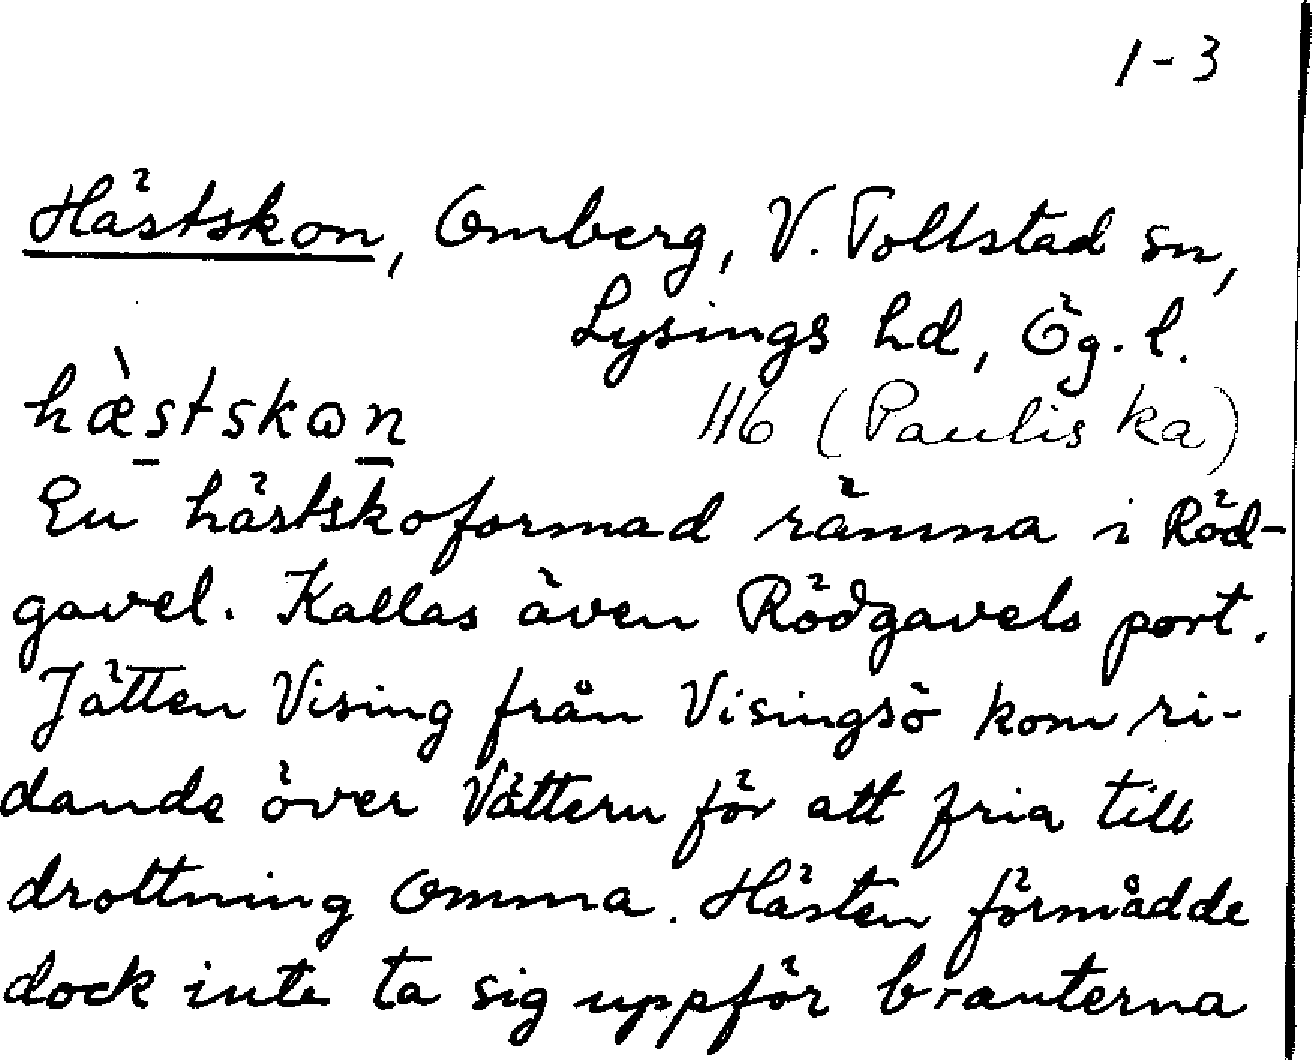 1-3
Hästskon, Omberg, V. Tollstad sn,
Lysings hd, Ög. l.
hæ̀stskɷn 116 (Pauliska)
En hästskoformad rämna i Röd-
gavel. Kallas även Rödgavels port.
Jätten Vising från Visingsö kom ri-
dande över Vättern för att fria till
drottning Omma. Hästen förmådde
dock inte ta sig uppför branterna